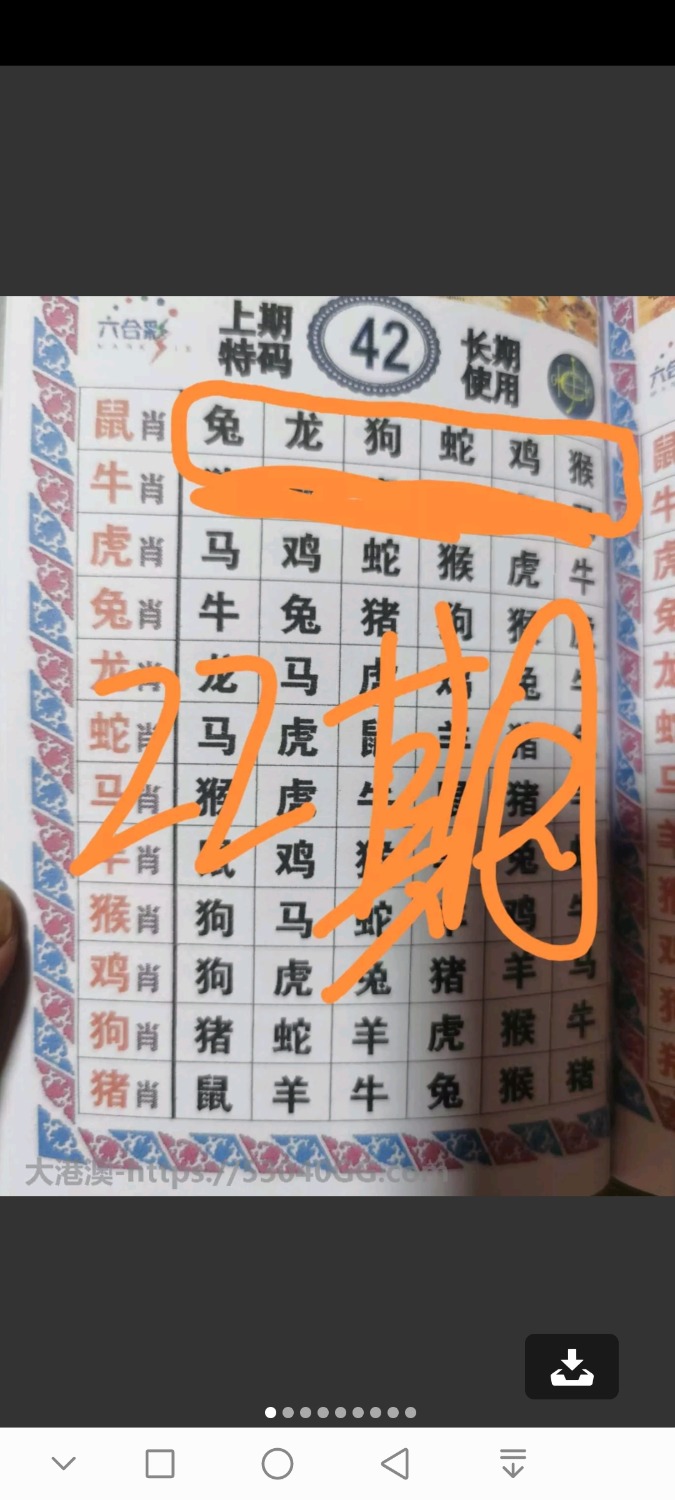 六合彩
上期
特码
42
长期
使用
鼠肖 兔 龙 狗 蛇 鸡 猴
牛肖
虎肖 马 鸡 蛇 猴 虎 牛
兔肖 牛 兔 猪 狗 猴
龙肖 龙 马 虎 鸡 兔 牛
蛇肖 马 虎 鼠 羊 猪
马肖 猴 虎 牛 猪
羊肖 鼠 鸡 猴 兔
猴肖 狗 马 蛇 羊 鸡 牛
鸡肖 狗 虎 兔 猪 羊 马
狗肖 猪 蛇 羊 虎 猴 牛
猪肖 鼠 羊 牛 兔 猴 猪
22期
大港澳-https://55640GG.com
六合
鼠
牛
虎
兔
龙
蛇
马
羊
猴
鸡
狗
猪